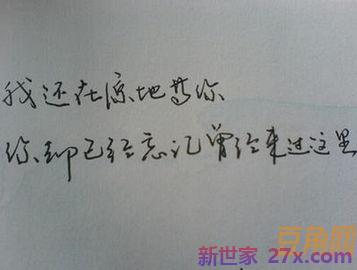 我还在原地等你
你却已经忘记曾经来过这里
豆角网
新世家 27x.com